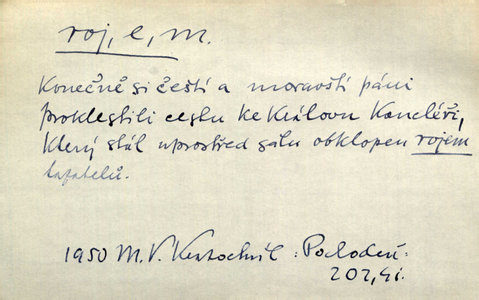 roj, e, m.
Konečně si čeští a moravští páni
proklestili cestu ke Královu Kancléři,
který stál uprostřed sálu obklopen rojem
tazatelů.
1950 M. V. Kratochvíl :
202,4i.